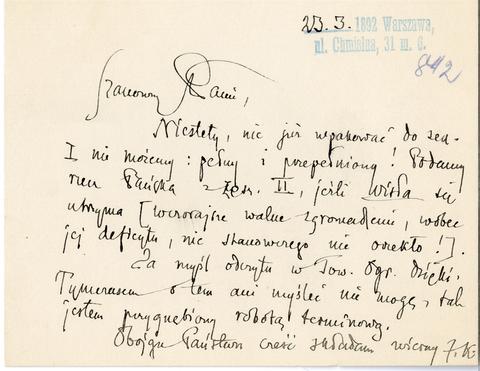 23.3. 1892 Warszawa,
ul. Chmielna, 31 m. 6.
842
Szanowny Panie,
Niestety, nic już wpakować do zesz.
I nie możemy: pełny i przepełniony! Podamy
rzecz Pańską z zesz. II, jeśli Wisła się
utrzyma [wczorajsze walne zgromadzenie, wobec
jej deficytu, nic stanowczego nie orzekło!].
Za myśl odczytu w Tow. Ogr. dzięki.
Tymczasem o tem ani myśleć nie mogę, tak
jestem przygnębiony robotą terminową.
Obojgu Państwu cześć składam wierny J. K.